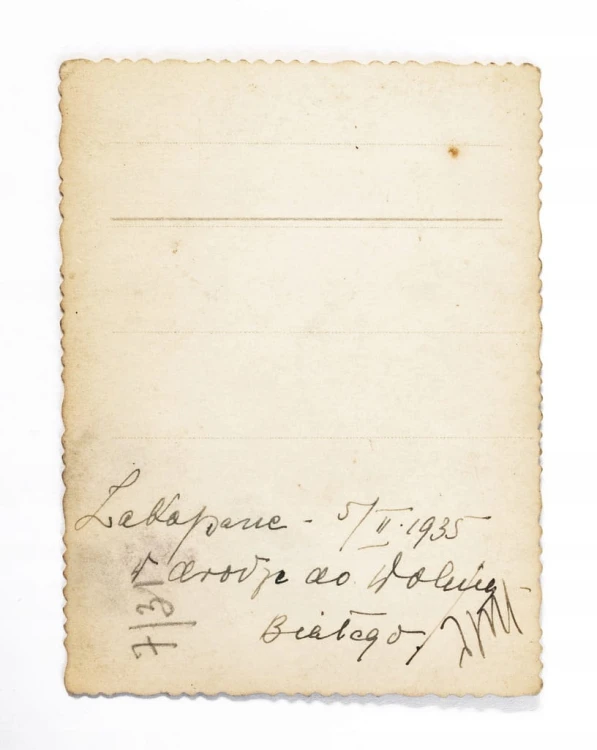 Zakopane - 5/II. 1935
w drodze do Doliny
Białego,
7/31